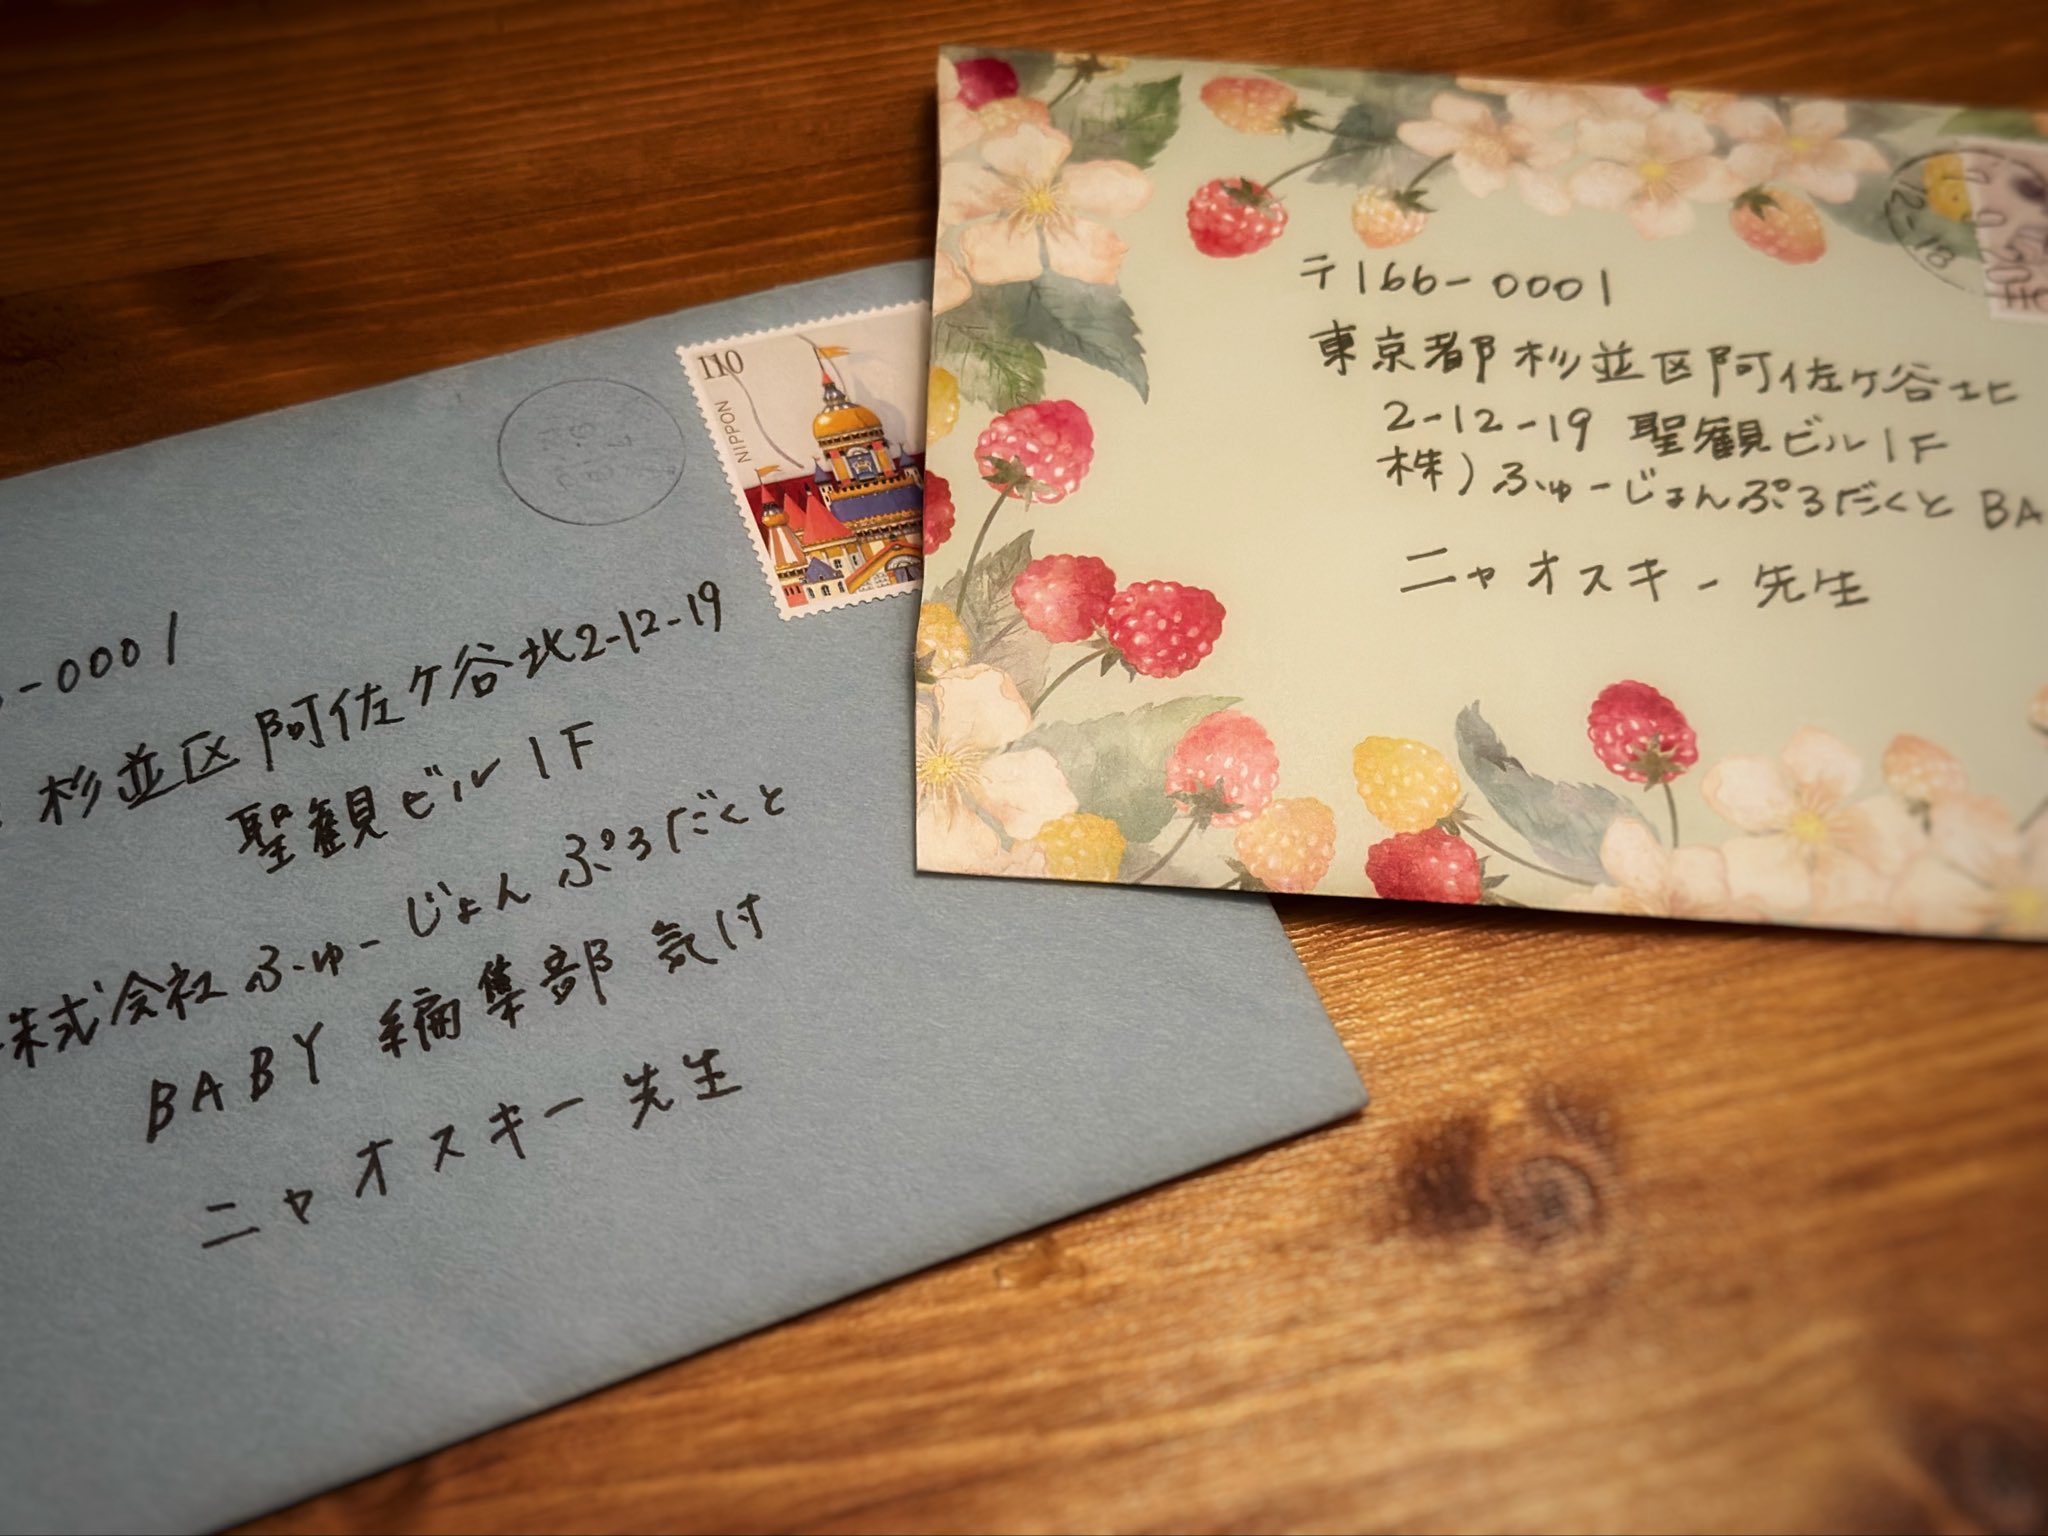 110
NIPPON
-0001
杉並区阿佐ケ谷北2-12-19
聖観ビル1F
株式会社ふゅーじょんぷろだくと
BABY 編集部 気付
ニャオスキー 先生
〒166-0001
東京都杉並区阿佐ヶ谷北
2-12-19 聖観ビル1F
株)ふゅーじょんぷろだくと BA
ニャオスキー 先生
12-18